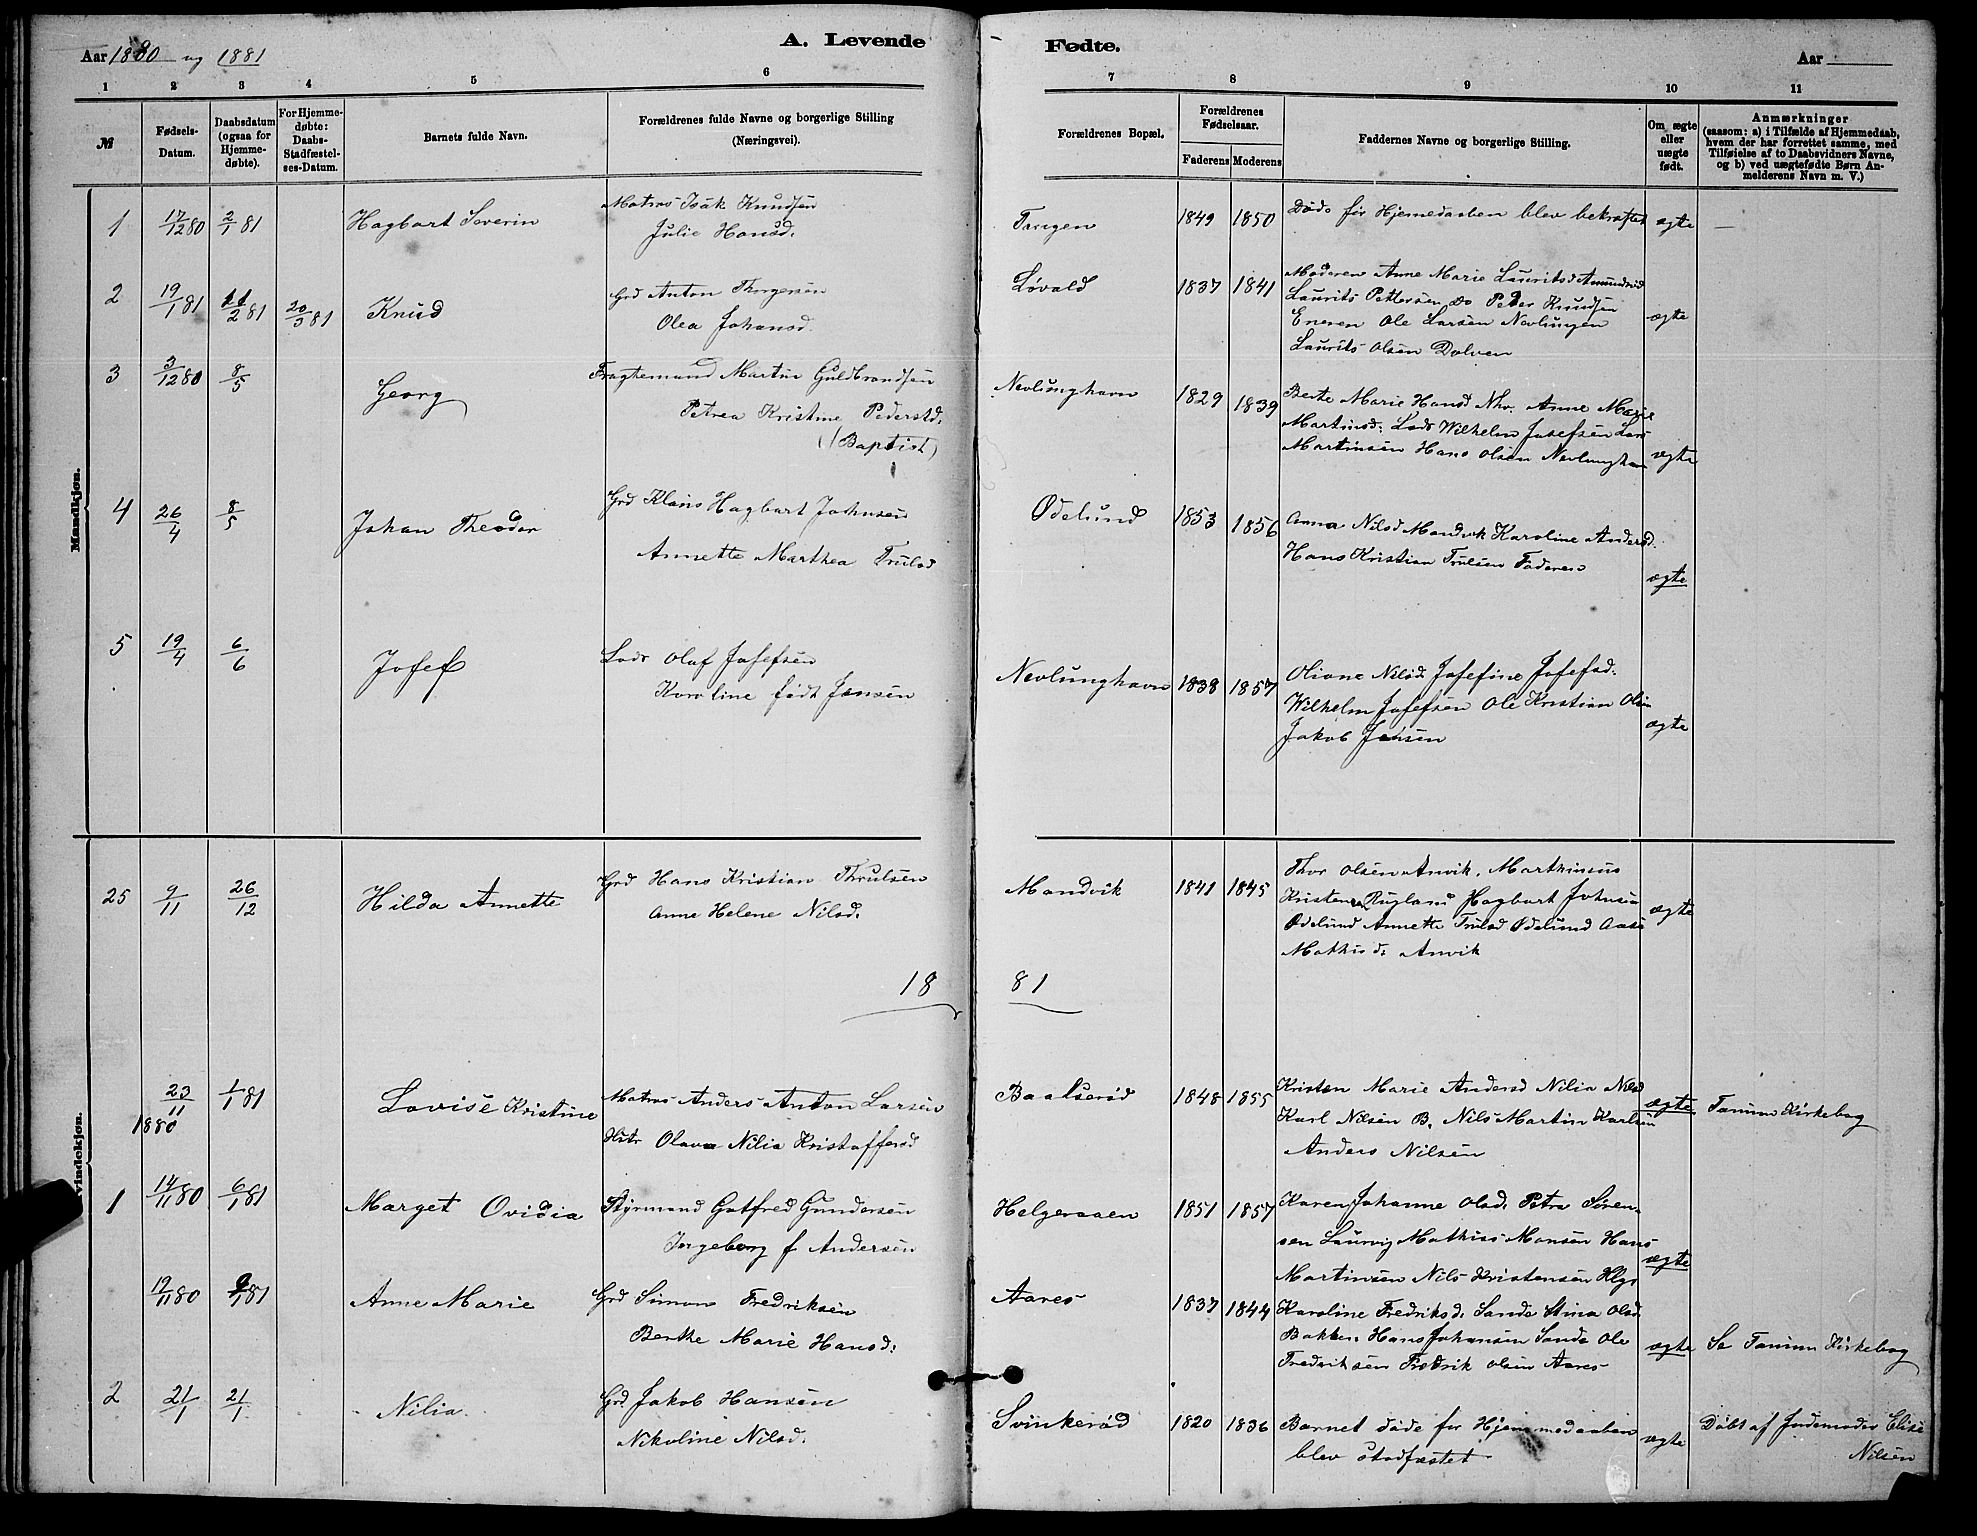 A. Levende Fødte.
Aar 1880 og 1881
Aar
1 2 3 4 5 6 7 8 9 10 11
№
Fødsels-Datum.
Daabsdatum (ogsaa for Hjemmedøbte).
For Hjemmedøbte: Daabs-Stadfæstelses-Datum.
Barnets fulde Navn.
Forældrenes fulde Navne og borgerlige Stilling
(Næringsvei).
Forældrenes Bopæl.
Forældrenes Fødselsaar.
Faderens Moderens
Faddernes Navne og borgerlige Stilling.
Om ægte eller uægte født.
Anmærkninger
(saasom: a) i Tilfælde af Hjemmedaab, hvem der har forrettet samme, med Tilføielse af to Daabsvidners Navne, og b) ved uægtefødte Børn Anmelderens Navn m. V.)
Mandkjøn.
1 17/12 80 2/1 81 Hagbart Severin
Matros Isak Knudsen
Julie Hansd.
1849 1850 Døde før Hjemedaaben blev bekræftet ægte —
2 19/1 81 11/2 81 20/3 81 Knud
Grd Anton Thorgersen
Olea Johansd.
Løvald 1837 1841 Moderen Anne Marie Lauritsd Amundrød
Laurits Pettersen do Peder Knudsen
Eneren Ole Larsen Nevlungen
Laurits Olsen Dolven
ægte
3 3/12 80 8/5 Georg
Fragtemand Martin Guldbrandsen
Petrea Kristine Pedersd.
(Baptist)
Nevlunghavn 1829 1839 Berte Marie Hansd Nhv. Anne Marie
Martinsd: Lods Wilhelm Josefsen Lars
Martinsen Hans Olsen Nevlunghavn
ægte
4 26/4 8/5 Johan Theodor
Grd Klaus Hagbart Johnsen
Annette Marthea Trulsd
Ødelund 1853 1856 Anna Nilsd Mandvik Karoline Andersd.
Hans Kristian Trulsen Faderen
ægte
5 19/4 6/6 Josef
Lods Olaf Josefsen
Karoline født Jensen
Nevlunghavn 1838 1857 Oliane Nilsd Josefine Josefsd.
Wilhelm Josefsen Ole Kristian Olsen
Jakob Jensen
ægte
25 9/11 26/12 Hilda Annette
Grd Hans Kristian Thrulsen
Anne Helene Nilsd.
Mandvik 1841 1845 Thor Olsen Anvik. Marthinius
Kristensen Rugland Hagbart Johnsen
Ødelund Annette Trulsd Ødelund Aase
Mathisd. Anvik
ægte
18 81
Kvindekjøn.
23/11 1880 1/1 81 Lovise Kristine
Matros Anders Anton Larsen
Hstr Olava Nilia Kristoffersd
Baalsrød 1848 1855 Kristen Marie Andersd Nilia Nilsd
Karl Nilsen B. Nils Martin Karlsen
Anders Nilsen
ægte Tanum Kirkebog
1 14/11 80 6/1 81 Marget Ovidia
Styrmand Gotfred Gundersen
Ingeborg f Andersen
Helgeroaen 1851 1857 Karen Johanne Olsd. Petra Søren-
sen Laurvig Mathias Monsen Hans
Martinsen Nils Kristensen Hlgr
ægte
19/11 80 9/1 81 Anne Marie
Grd Simon Fredriksen
Berthe Marie Hansd.
Aares 1837 1844 Karoline Fredriksd. Sande Stina Olsd
Bakken Hans Johansen Sande Ole
Fredriksen Fredrik Olsen Aares
ægte Se Tanum Kirkebog
2 21/1 21/1 Nilia
Grd Jakob Hansen
Nikoline Nilsd.
Svinkerød 1820 1836 Barnet døde før Hjemmedaaben
blev stadfæstet
ægte Døbt af Jordemoder Elise
Nilsen